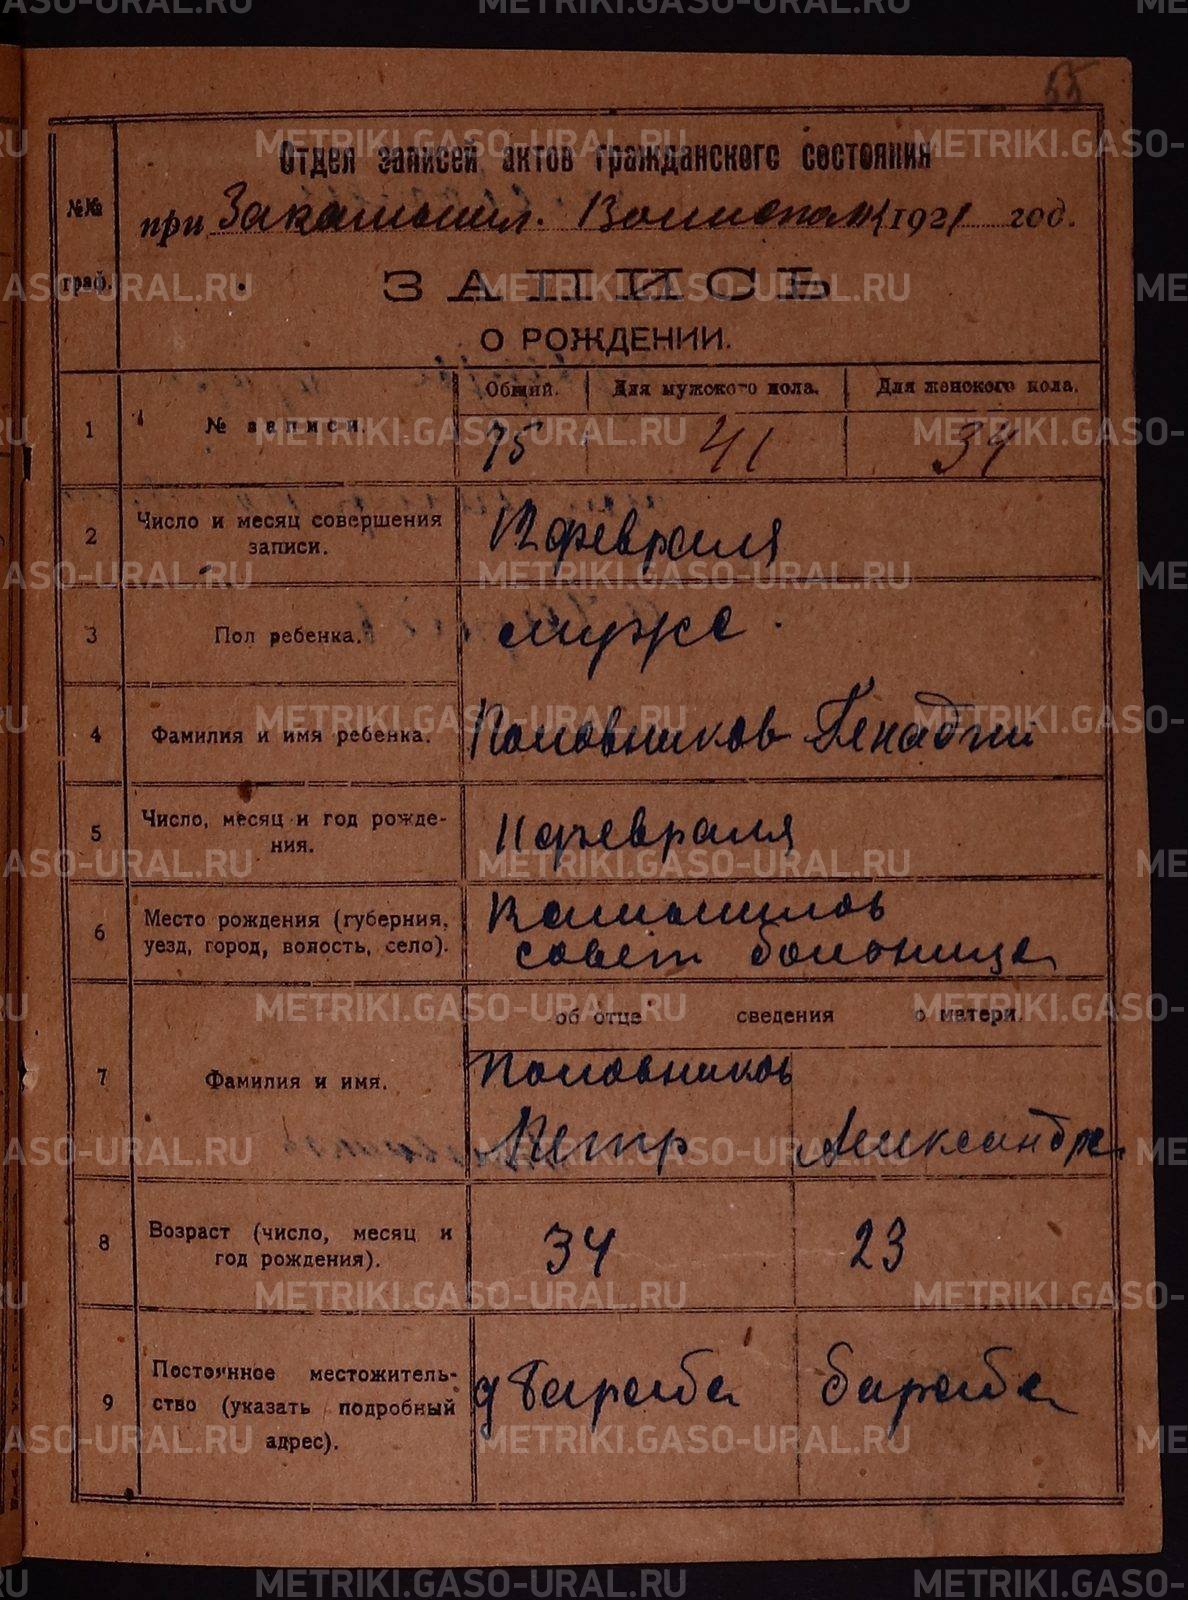 55
Отдел записей актов гражданского состояния
№№ граф.
при Закамышл. Волисполк 1921 год.
ЗАПИСЬ
О РОЖДЕНИИ.
1 № записи. Общий. Для мужского пола. Для женского пола.
75 41 34
2 Число и месяц совершения записи. 12 февраля
3 Пол ребенка. мужс
4 Фамилия и имя ребенка. Половников Генадий
5 Число, месяц и год рождения. 11 февраля
6 Место рождения (губерния, Камышлов
уезд, город, волость, село). совет больница
об отце сведения о матери.
7 Фамилия и имя. Половников
Петр Александра
8 Возраст (число, месяц и год рождения). 34 23
9 Постоянное местожительство (указать подробный адрес). д Бараба Бараба
METRIKI.GASO-URAL.RU